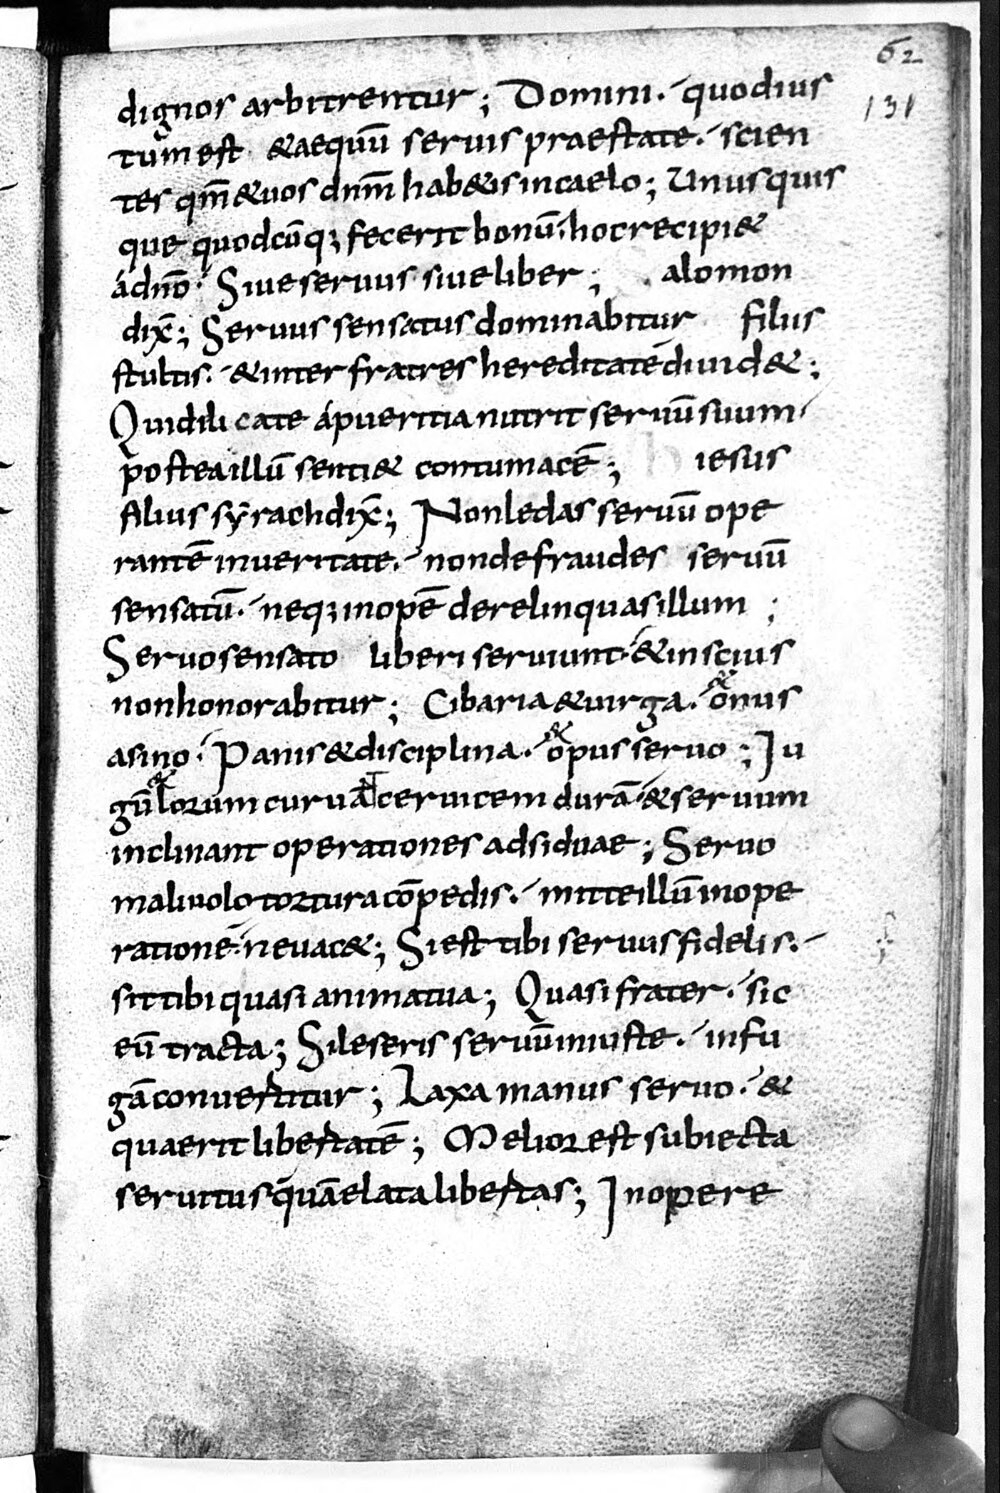 62
131
dignos arbitrentur; Domini. quod ius
tum est & aequū seruis praestate. scien
tes qm̄ & uos dnm̄ hab&is in caelo; Unusquis
que quodcūq; fecerit bonū. hoc recipi&
a dnō. Siue seruus siue liber; alomon
dix̄; Seruus sensatus dominabitur filiis
stultis. & inter fratres hereditatē diuid&;
Qui dilicate a pueritia nutrit seruū suum
postea illū senti& contumacē; iesus
filius syrach dix̄; Non ledas seruū ope
rantē in ueritate. non defraudes seruū
sensatū. neq; inopē derelinquas illum;
Seruo sensato liberi seruiunt. & inscius
non honorabitur; Cibaria & uirga. & onus
asino. Panis & disciplina. & opus seruo; Iu
gū & lorum curuāt ceruicem durā. & seruum
inclinant operationes adsiduae; Seruo
maliuolo tortura & cōpedis. mitte illū in ope
rationē. ne uac&; Si est tibi seruus fidelis.
sit tibi quasi anima tua; Quasi frater. sic
eū tracta; Si leseris seruū iniuste. in fu
gā conuertitur; Laxa manus seruo. &
quaerit libertatē; Melior est subiecta
seruitus quā elata libertas; In opere